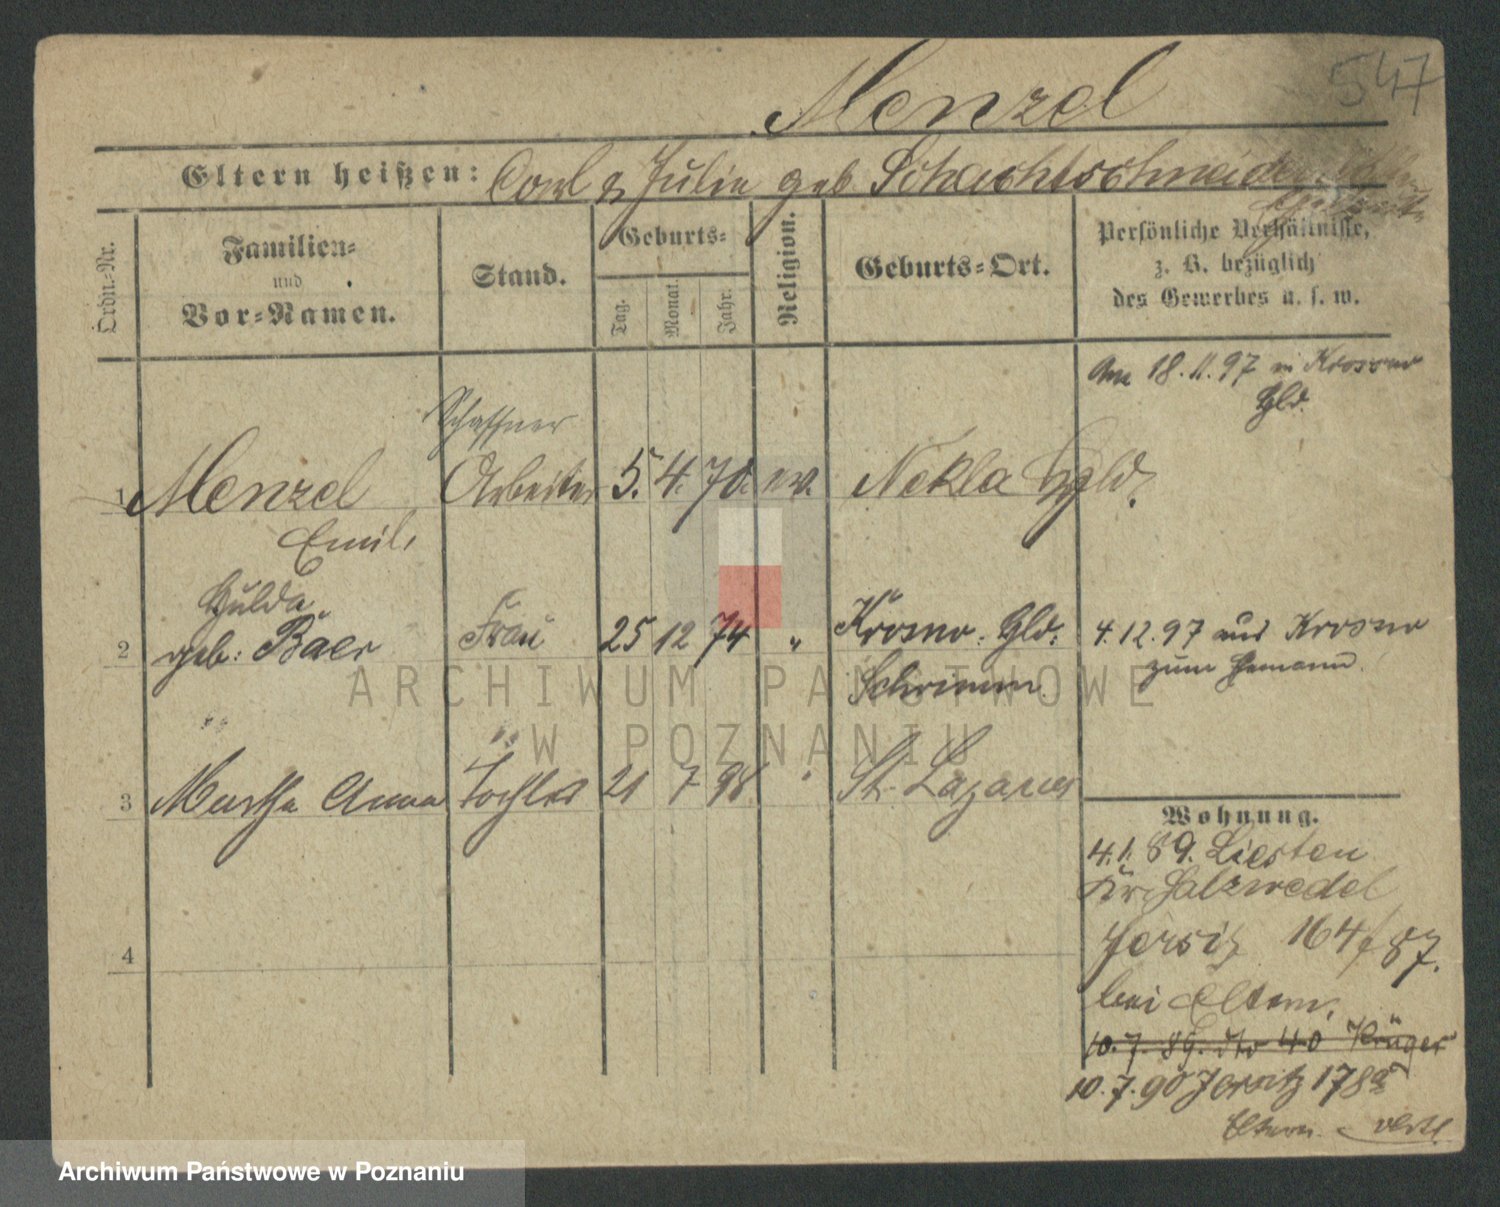 547
Menzel
Eltern heißen: Carl & Julie geb Schachtschneider
Ordn.-Nr.
Familien-
und
Vor-Namen.
Stand.
Geburts-
Tag.
Monat.
Jahr.
Religion.
Geburts-Ort.
Persönliche Verhältnisse,
z. B. bezüglich
des Gewerbes u. s. w.
Am 18.11.97 in Krosno
Hld.
Schaffner
1 Menzel Arbeiter 5. 4. 70. ev. Nekla Hld.
Emil
Hulda
2 geb: Baer Frau 25 12 74 " Krosno Hld: 4.12.97 aus Krosno
Schrimm. zum Ehemann.
3 Martha Anna Tochter 21 7 98 " St. Lazarus
4
Wohnung.
4.1.89. Liesten
Kr. Salzwedel
Jersitz 164/87.
bei Eltern.
10.7.89. dto 40 Krüger
10.7.90 Jersitz 178a
Eltern.
ARCHIWUM PAŃSTWOWE
W POZNANIU
Archiwum Państwowe w Poznaniu